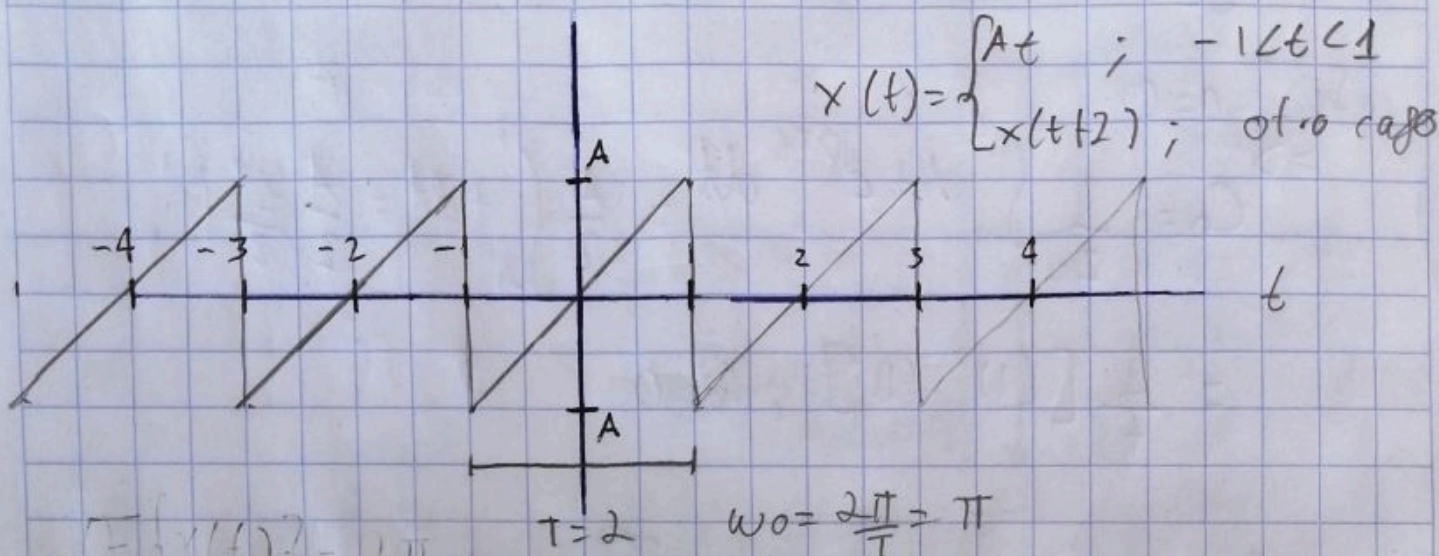 x(t)= { At ; -1<t<1
x(t+2) ; otro caso
A
-4 -3 -2 -1 1 2 3 4 t
A
T=2 ω0= 2π/T = π